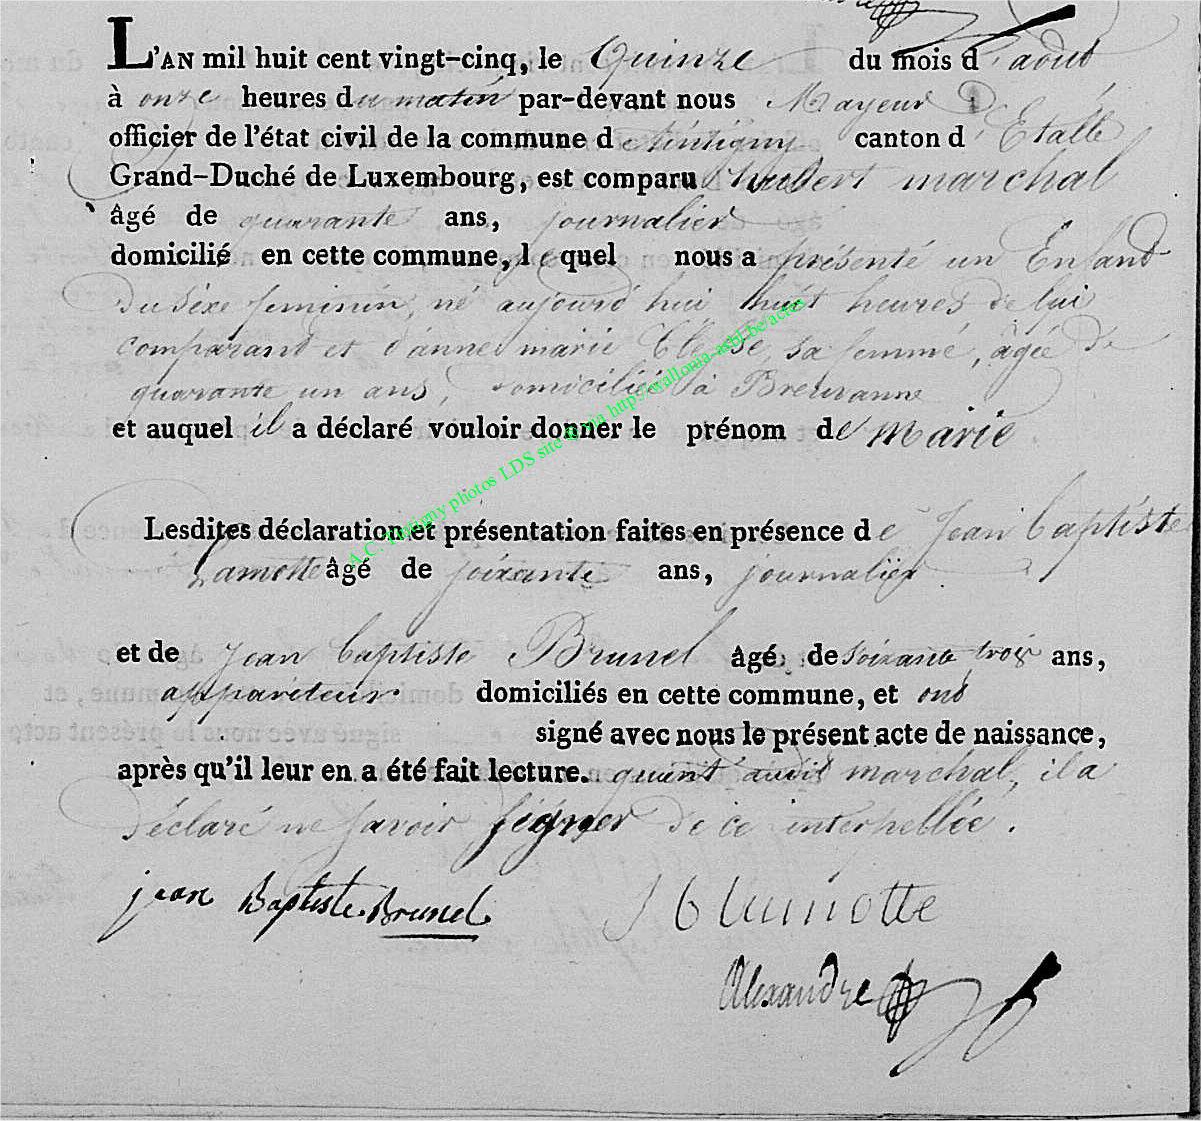 L'AN mil huit cent vingt-cinq, le Quinze du mois d'août
à onze heures du matin par-devant nous Mayeur
officier de l'état civil de la commune de tintigny canton d'Etalle
Grand-Duché de Luxembourg, est comparu hubert marchal
âgé de quarante ans, journalier
domicilié en cette commune, lequel nous a présenté un Enfand
du séxe feminin, né aujourd'hui huit heures de lui
comparand et d'anne marie sa femme, âgée de
quarante un ans, domiciliée à Breuvanne
et auquel il a déclaré vouloir donner le prénom de marie
Lesdites déclaration et présentation faites en présence de Jean baptiste
Lamotte âgé de soixante ans, journalier
et de Jean baptiste Brunel âgé de soixante trois ans,
appariteur domiciliés en cette commune, et ont
signé avec nous le présent acte de naissance,
après qu'il leur en a été fait lecture. quant audit marchal, il a
déclaré ne savoir signer de ce interpellée.
jean Baptiste Brunel
J b lamotte
Alexandre
A.C. Tintigny photos LDS site via http://wallonia-asbl.be/actes